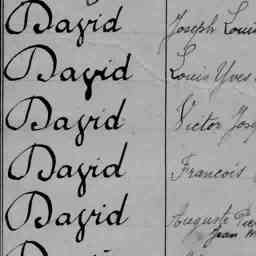 David Joseph Louis
David Louis Yves
David Victor Jose
David Francois
David Auguste Pie
Jean M